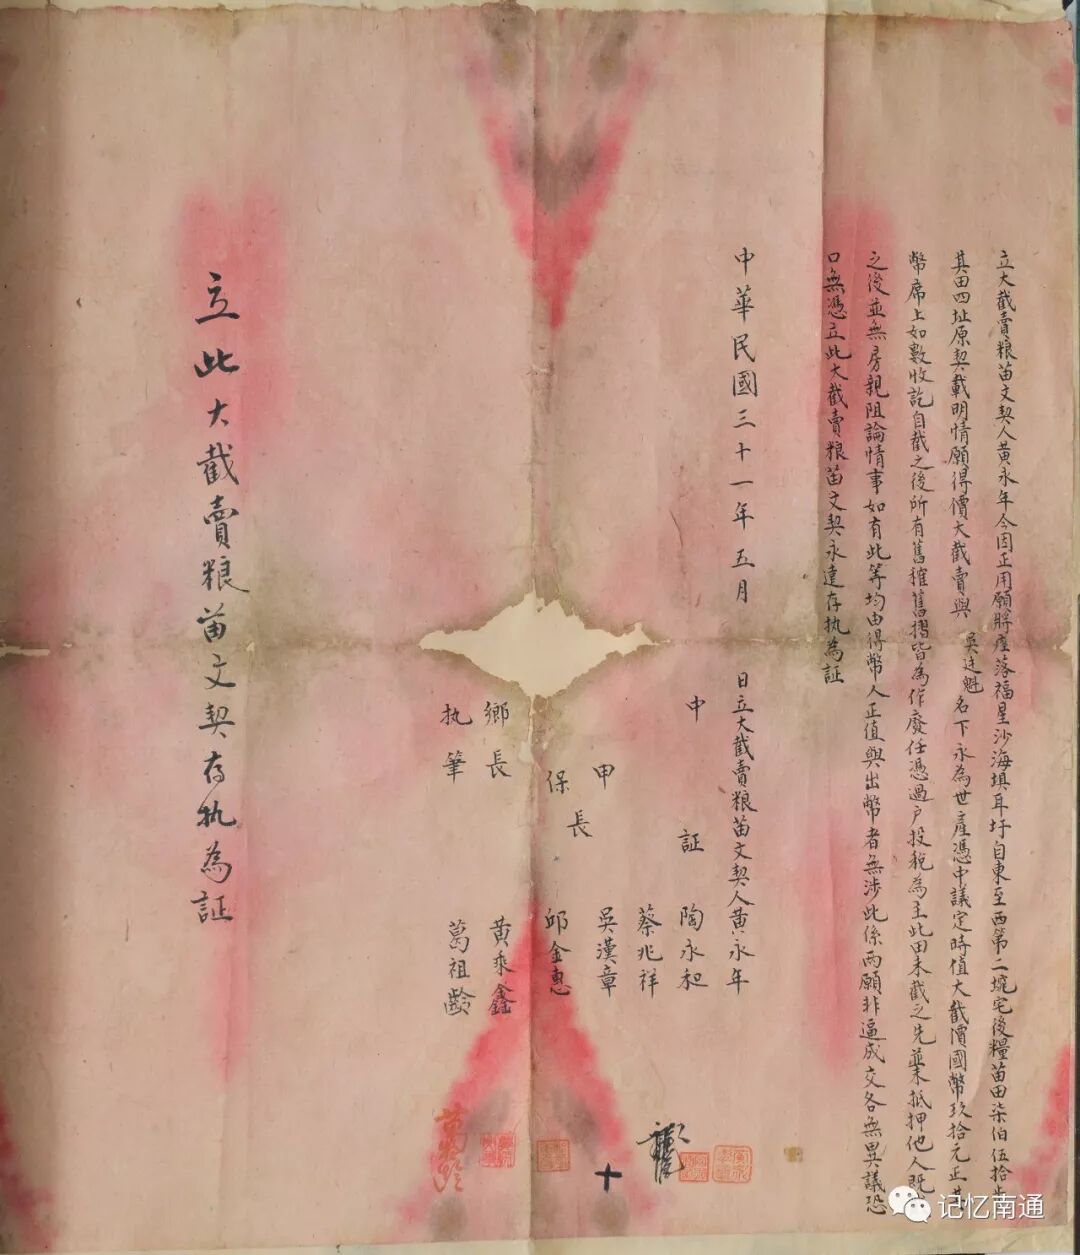 立大截賣粮苗文契人黄永年今因正用願將座落福星沙海填耳圩自東至西第二境宅後糧苗田柒伯伍拾步
其田四址原契載明情願得價大截賣與 吳廷魁名下永為世產憑中議定時值大截價國幣玖拾元正其
幣席上如數收訖自截之後所有舊摧舊摺皆為作廢任憑過户投稅為主此田未截之先並未抵押他人既截
之後並無房親阻論情事如有此等均由得幣人正值與出幣者無涉此係兩願非逼成交各無異議恐
口無憑立此大截賣粮苗文契永遠存执為証
中華民國三十一年五月 日立大截賣粮苗文契人黄永年
中証 陶永和
蔡兆祥
甲長 吳漢章
保長 邱金惠
鄉長 黄乘鑫
执筆 葛祖齡
立此大截賣粮苗文契存执為証
记忆南通